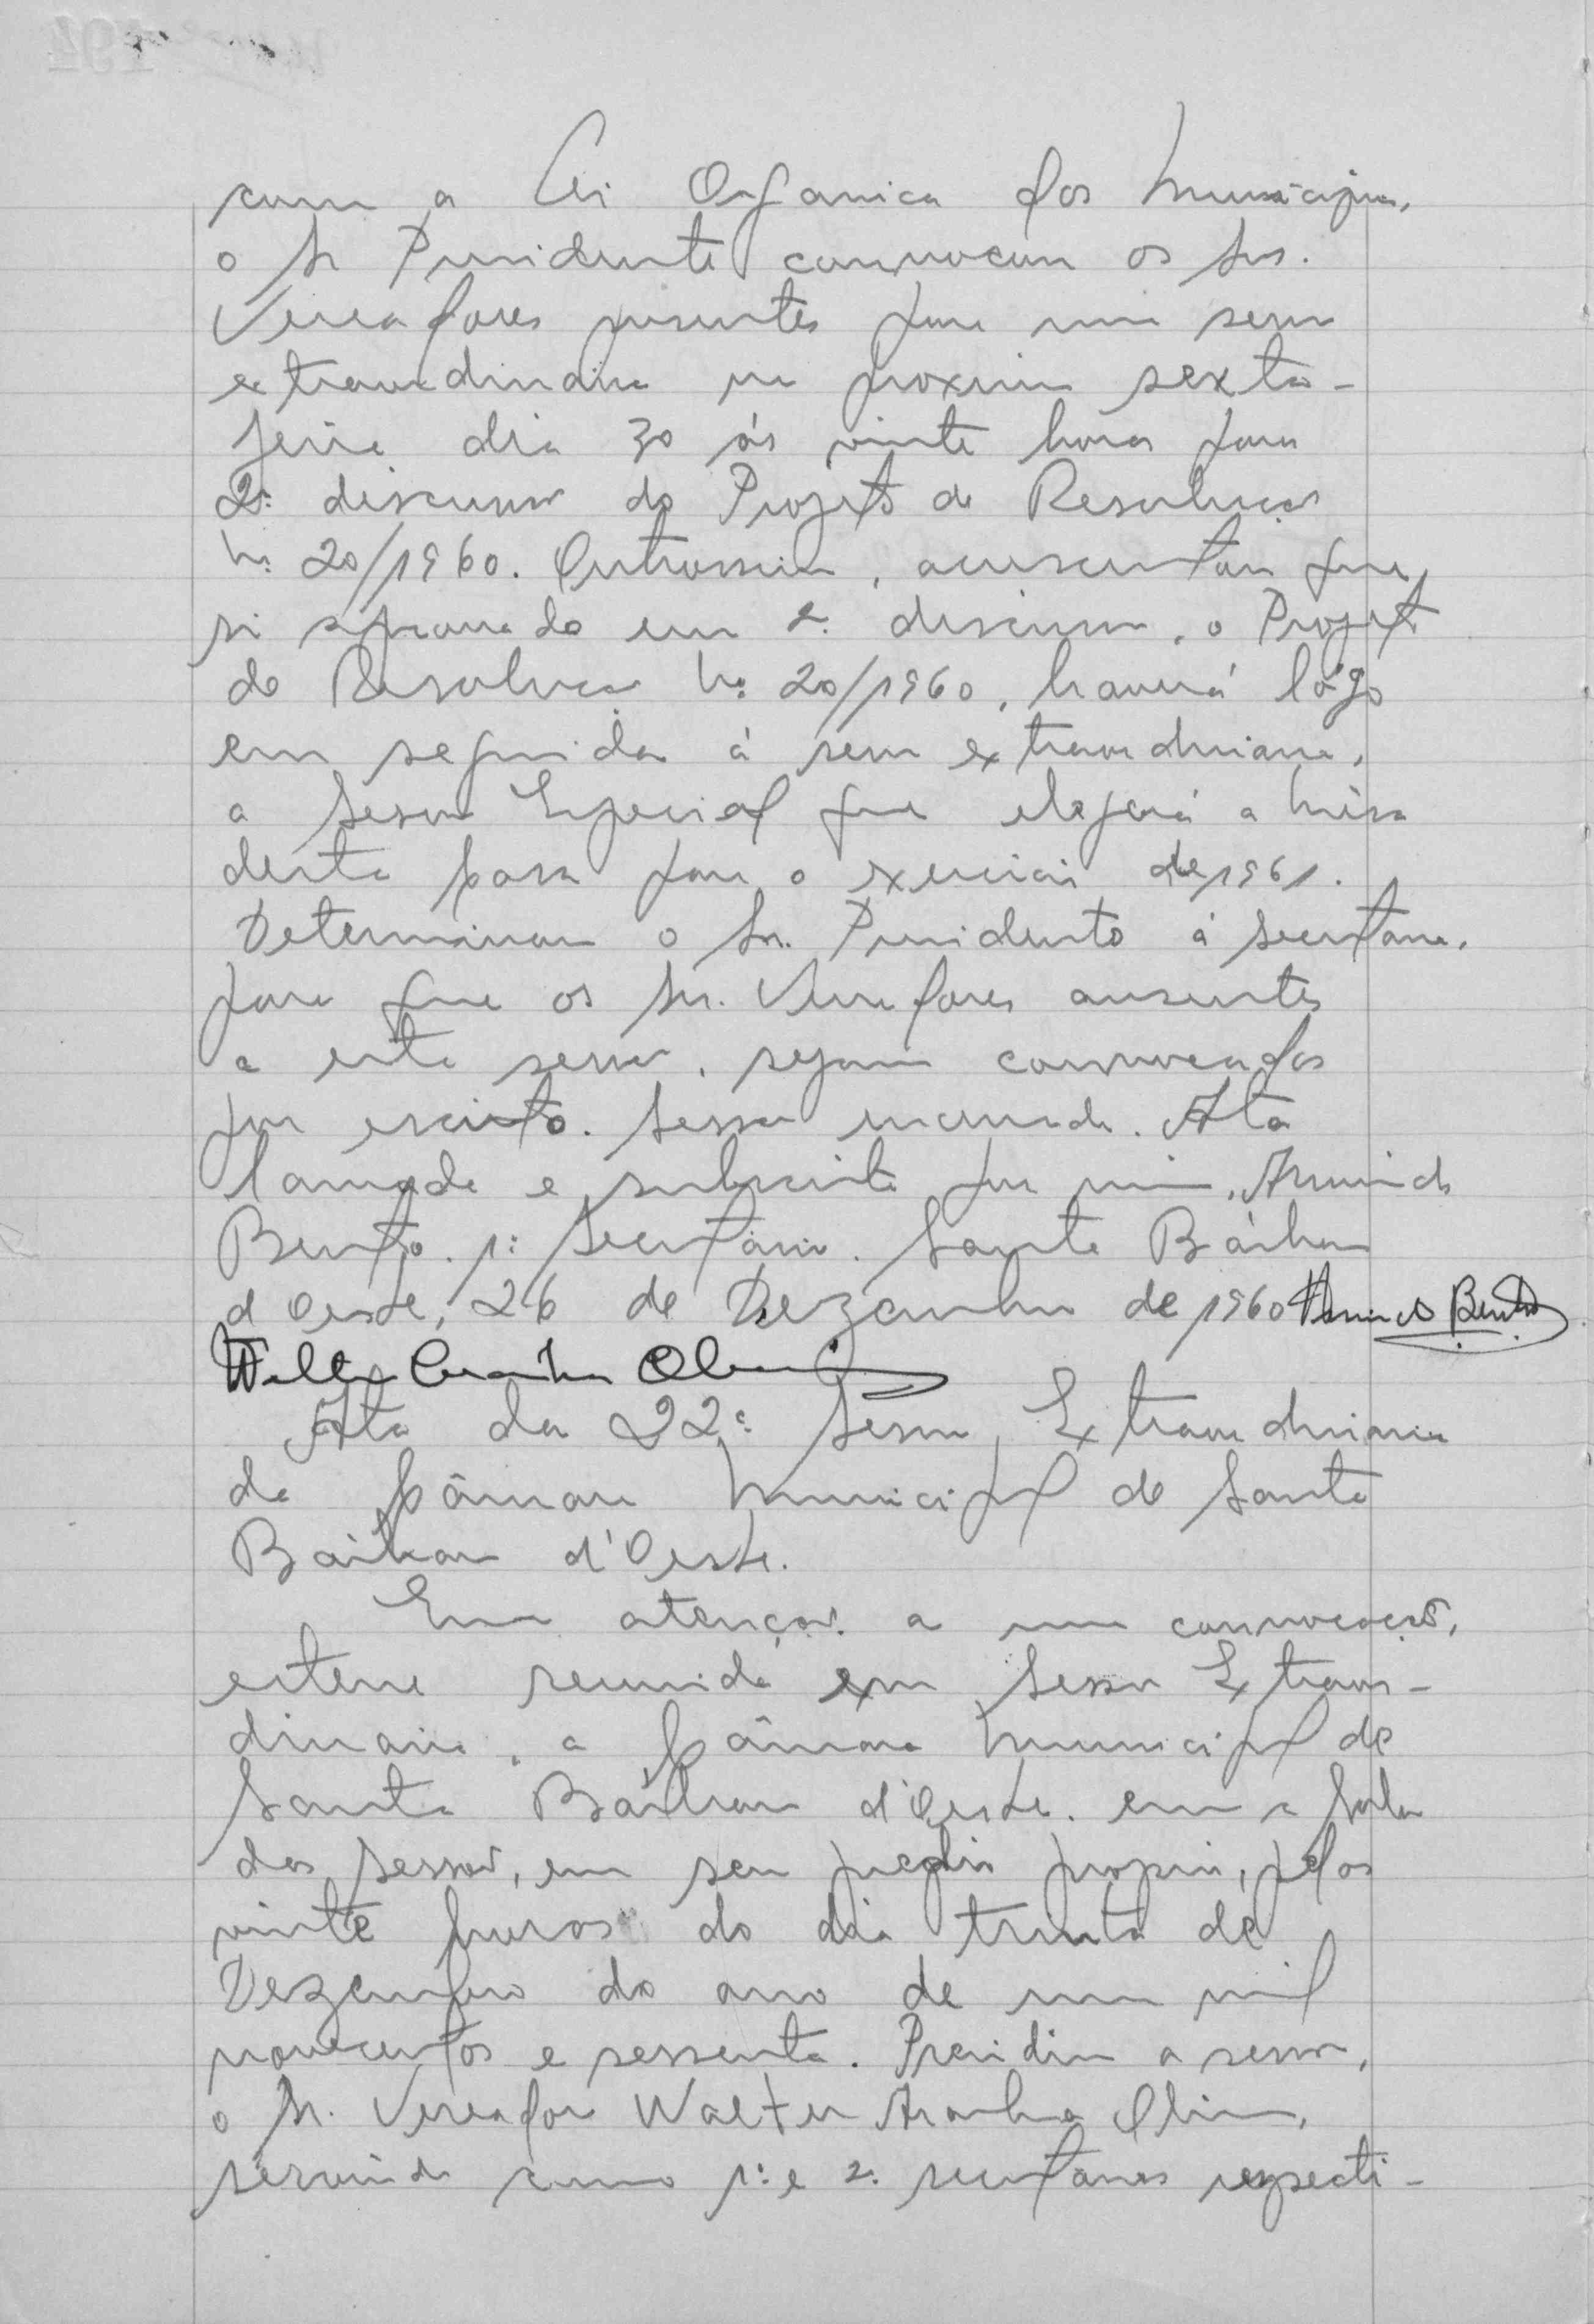 com a Lei Organica dos Municipios,
o Sr Presidente convocou os Srs.
Vereadores presentes para uma sessão
extraordinária na proxima sexta-
feira dia 30 ás vinte horas para
2ª discussão do Projeto de Resolução
nº 20/1960. Outrossim, acrescentou que,
si aprovado em 2ª discussão, o Projeto
de Resolução nº 20/1960, haverá lógo
em seguida á sessão extraordinaria,
a Sessão Especial que elegerá a Mêsa
desta Casa para o exercicio de 1961.
Determinou o Sr. Presidente á Secretaria,
para que os Srs. Vereadores ausentes
a esta sessão, sejam convocados
por escrito. Sessão encerrada. Ata
lavrada e subscrita por mim, Armindo
Bento, 1º Secretário. Santa Bárbara
d'Oeste, 26 de Dezembro de 1960 Bento
Walter Aranha Olim
Ata da 22ª Sessão Extraordinaria
da Câmara Municipal de Santa
Bárbara d'Oeste.
Em atenção a uma convocação,
esteve reunida em Sessão Extraor-
dinaria, a Câmara Municipal de
Santa Bárbara d'Oeste, em a Sala
das Sessões, em seu predio proprio, pelas
vinte horas do dia trinta de
Dezembro do ano de um mil
novecentos e sessenta. Presidiu a sessão,
o Sr. Vereador Walter Aranha Olim,
servindo como 1º e 2º secretários respecti-